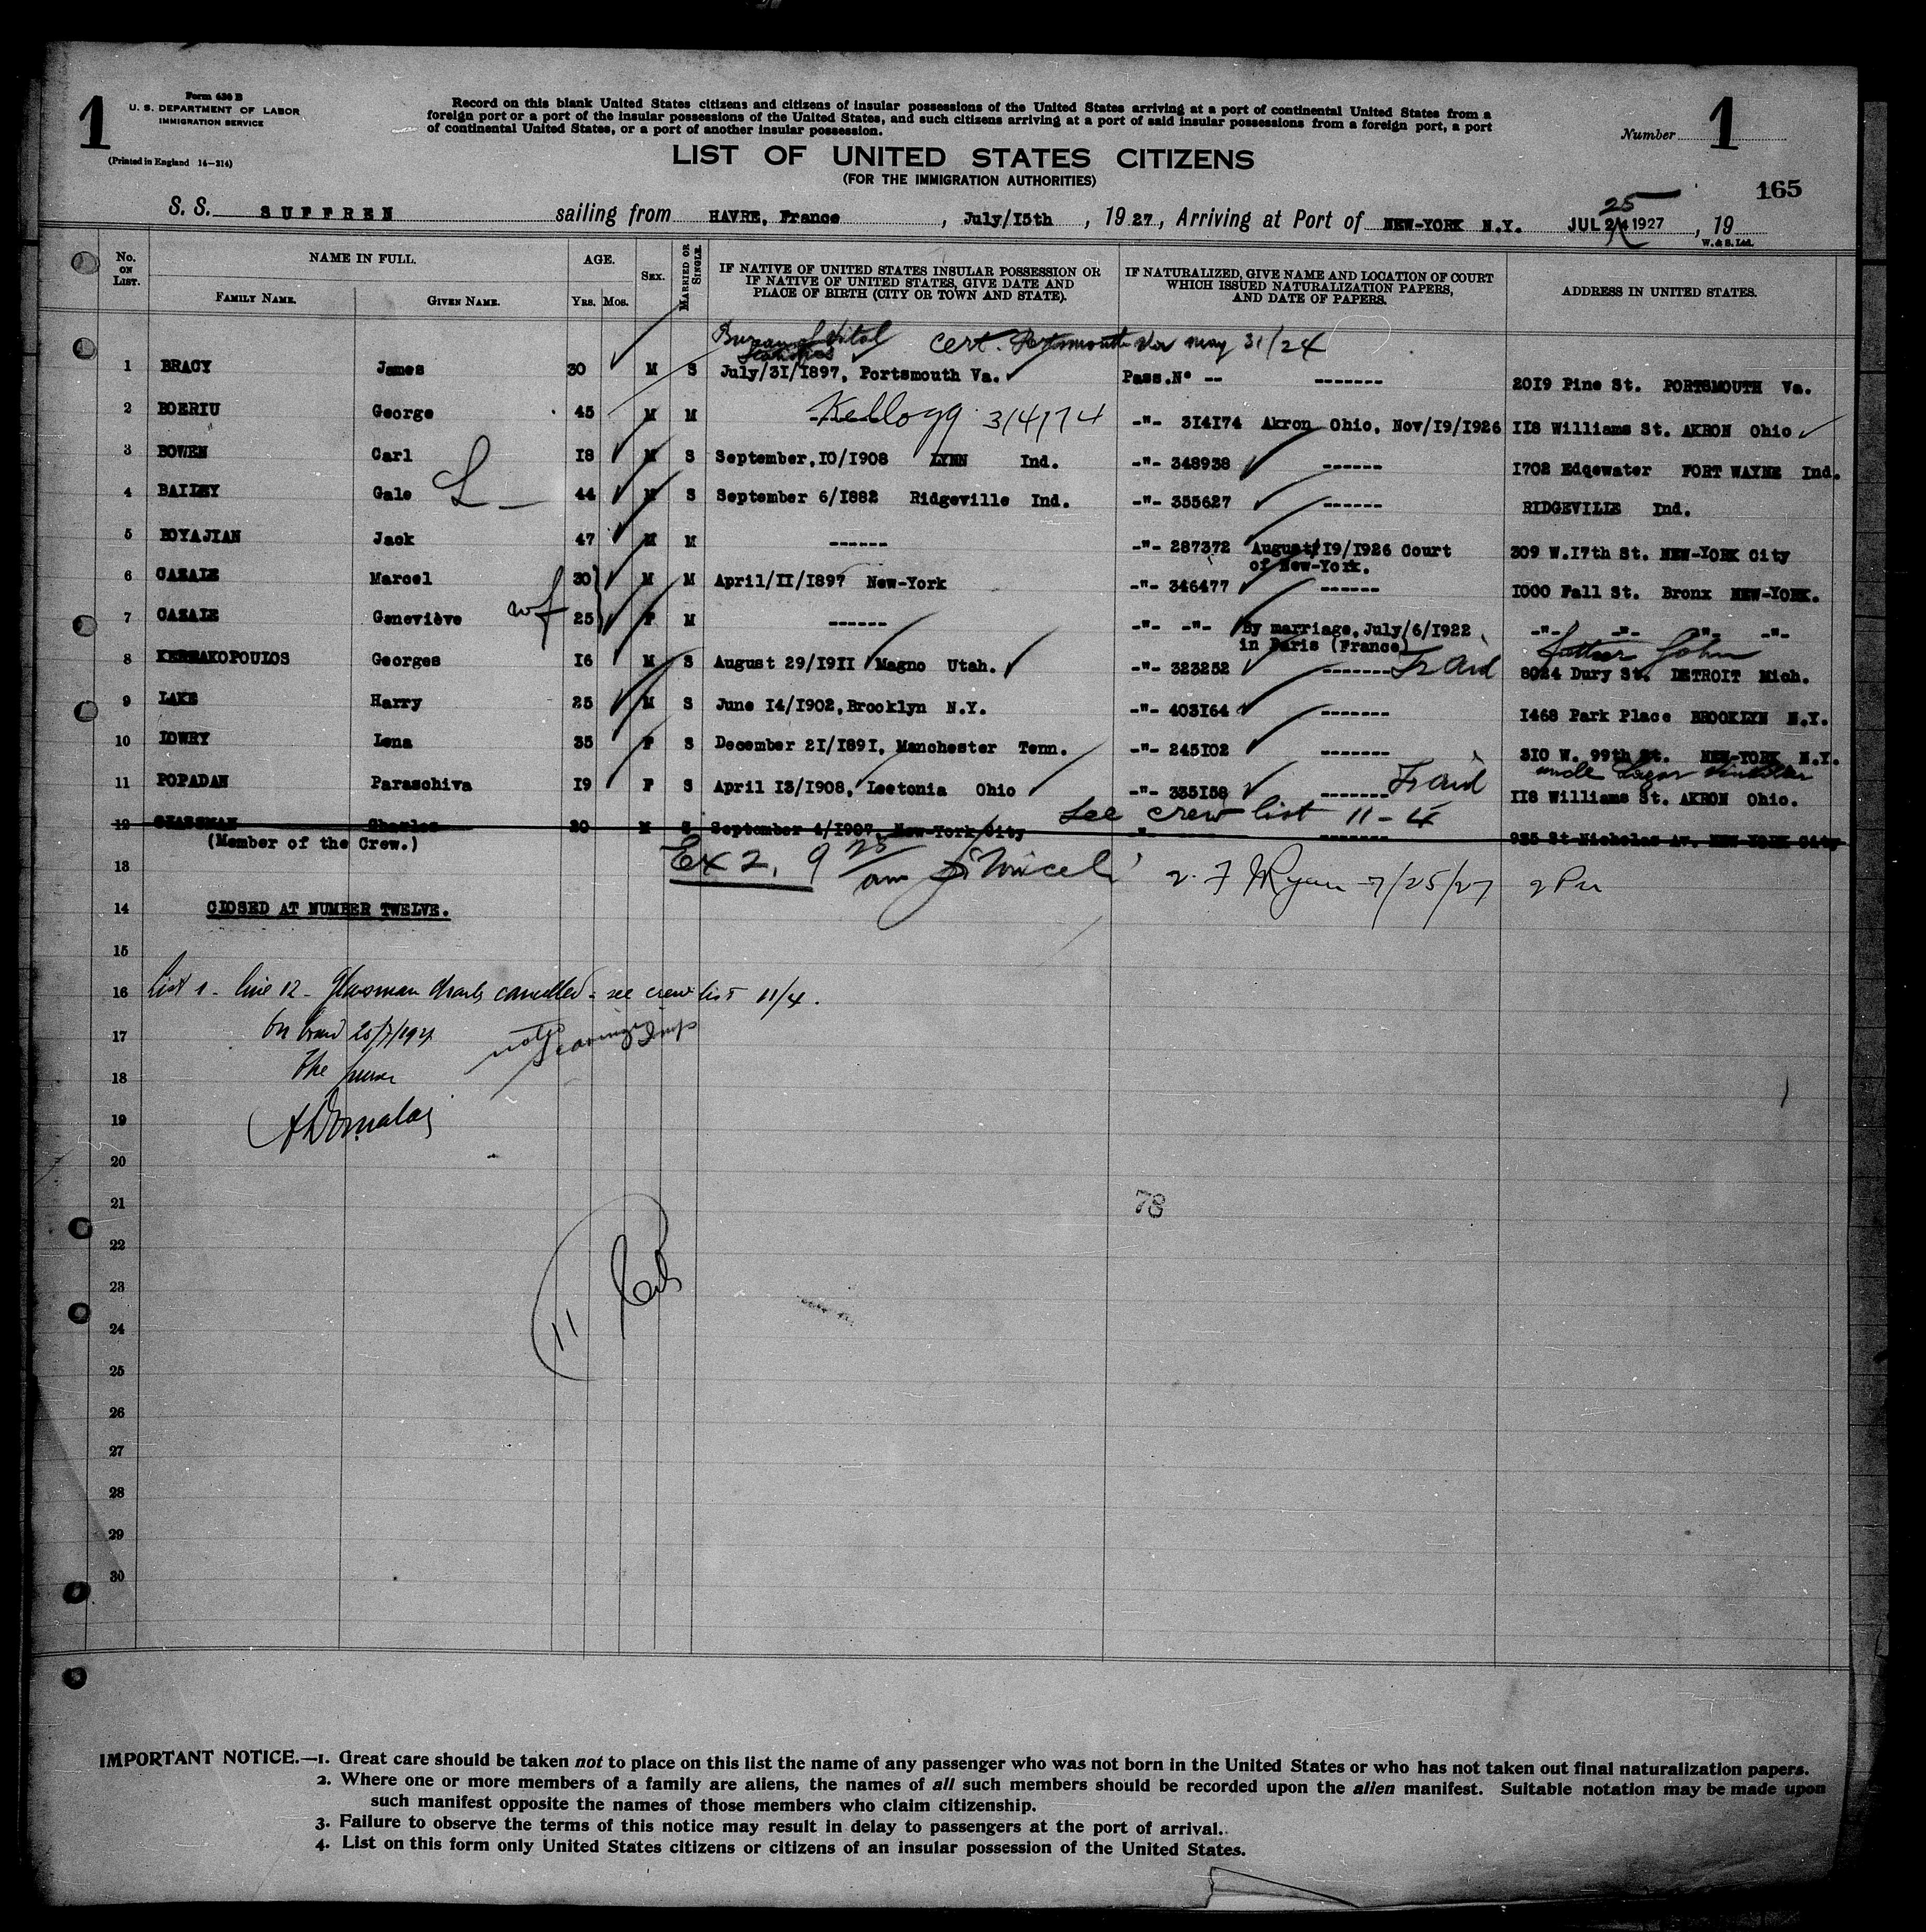 Form 630 B
U. S. DEPARTMENT OF LABOR
IMMIGRATION SERVICE
1
(Printed in England 14-314)
Record on this blank United States citizens and citizens of insular possessions of the United States arriving at a port of continental United States from a
foreign port or a port of the insular possessions of the United States, and such citizens arriving at a port of said insular possessions from a foreign port, a port
of continental United States, or a port of another insular possession.
Number 1
LIST OF UNITED STATES CITIZENS
(FOR THE IMMIGRATION AUTHORITIES)
165
25
S. S. SUFFREN sailing from HAVRE, France, July/15th, 1927, Arriving at Port of NEW-YORK N.Y. JUL 24 1927, 19
W. & S. Ltd.
No. ON LIST. NAME IN FULL. FAMILY NAME. GIVEN NAME. AGE. YRS. MOS. SEX. MARRIED OR SINGLE. IF NATIVE OF UNITED STATES INSULAR POSSESSION OR IF NATIVE OF UNITED STATES, GIVE DATE AND PLACE OF BIRTH (CITY OR TOWN AND STATE). IF NATURALIZED, GIVE NAME AND LOCATION OF COURT WHICH ISSUED NATURALIZATION PAPERS, AND DATE OF PAPERS. ADDRESS IN UNITED STATES.
Bureau of Vital Statistics cert. Portsmouth Va may 31/24
1 BRACY James 30 M S July/31/1897, Portsmouth Va. Pass.N° -- ------- 2019 Pine St. PORTSMOUTH Va.
2 BOERIU George 45 M M Kellogg 314174 -"- 314174 Akron Ohio, Nov/19/1926 118 Williams St. AKRON Ohio
3 BOWEN Carl 18 M S September,10/1908 LYNN Ind. -"- 348938 ------ 1702 Edqewater FORT WAYNE Ind.
4 BAILEY Gale L 44 M S September 6/1882 Ridgeville Ind. -"- 355627 ------ RIDGEVILLE Ind.
5 BOYAJIAN Jack 47 M M ------ -"- 287372 August/19/1926 Court of New-York. 309 W.17th St. NEW-YORK City
6 CASALE Marcel 30 M M April/11/1897 New-York -"- 346477 ------ 1000 Fall St. Bronx NEW-YORK.
7 CASALE Geneviève wf 25 F M ------ -"- -"- By marriage, July/6/1922 in Paris (France) -"- -"- -"- -"-
father John
8 KERMAKOPOULOS Georges 16 M S August 29/1911 Magno Utah. -"- 323252 ------- 8024 Dury St. DETROIT Mich.
9 LAKE Harry 25 M S June 14/1902,Brooklyn N.Y. -"- 403164 ------- 1468 Park Place BROOKLYN N.Y.
10 LOWRY Lena 35 F S December 21/1891, Manchester Tenn. -"- 245102 ------- 310 W. 99th St. NEW-YORK N.Y.
uncle Lazar
11 POPADAN Paraschiva 19 F S April 13/1908, Leetonia Ohio -"- 335158 ------- 118 Williams St. AKRON Ohio.
See crew list 11-4
12 GLASSMAN Charles 20 M S September 4/1907, New-York City -"- ------- 935 St Nicholas Av. NEW-YORK City
(Member of the Crew.)
13 Ex 2, 9 25 am 7/25/27 2 Pm
14 CLOSED AT NUMBER TWELVE.
15
16 List 1 - line 12 - Glasman Charles cancelled - see crew list 11/4.
17 On board 25/7/1927
18 The purser
19
20
21
78
22
23
24 11
25
26
27
28
29
30
IMPORTANT NOTICE.—1. Great care should be taken not to place on this list the name of any passenger who was not born in the United States or who has not taken out final naturalization papers.
2. Where one or more members of a family are aliens, the names of all such members should be recorded upon the alien manifest. Suitable notation may be made upon
such manifest opposite the names of those members who claim citizenship.
3. Failure to observe the terms of this notice may result in delay to passengers at the port of arrival.
4. List on this form only United States citizens or citizens of an insular possession of the United States.